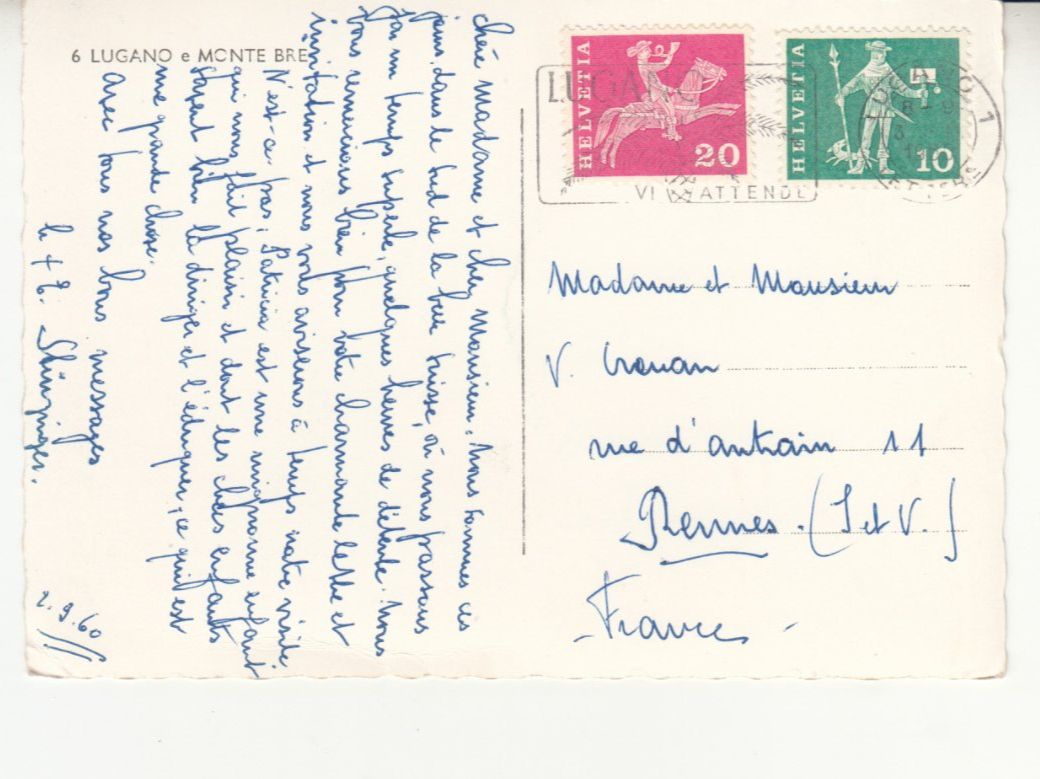 6 LUGANO e MONTE BRE
chère Madame et cher Monsieur, Nous sommes ces
jours dans le Sud de la belle Suisse, où nous passons
par un temps superbe, quelques heures de détente. Nous
vous remercions bien pour votre charmante lettre et
invitation et nous vous aviserons à temps notre visite.
N'est-ce pas, Patricia est une mignonne enfant
qui nous fait plaisir et dont les chers enfants
savent bien la diriger et l'éduquer, ce qui est
une grande chose.
Avec tous nos bons messages
2.9.60
HELVETIA
20
HELVETIA
10
LUGANO
VI ATTENDE
LUGANO 1
Madame et Monsieur
V. Crouan
rue d'antrain 11
Rennes. (I et V.)
- France -